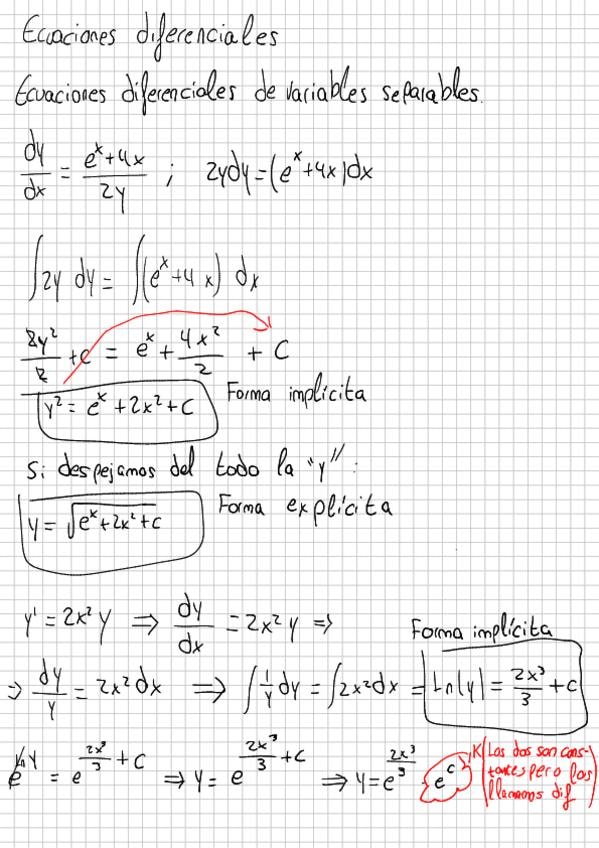 Ecuaciones diferenciales
Ecuaciones diferenciales de variables separables.
dy/dx = (e^x+4x)/2y ; 2ydy=(e^x+4x)dx
∫2y dy = ∫(e^x+4x) dx
2y²/2 + c = e^x + 4x²/2 + C
y² = e^x + 2x² + C Forma implícita
Si despejamos del todo la "y":
y = √(e^x+2x²+c) Forma explícita
y' = 2x² y ⇒ dy/dx = 2x² y ⇒
Forma implícita
⇒ dy/y = 2x² dx ⇒ ∫1/y dy = ∫2x²dx = Ln(y) = 2x³/3 + C
e^(ln y) = e^(2x³/3 + C) ⇒ y = e^(2x³/3 + C) ⇒ y = e^(2x³/3) · e^C K (Las dos son cons-
tantes pero las
llamamos dif)